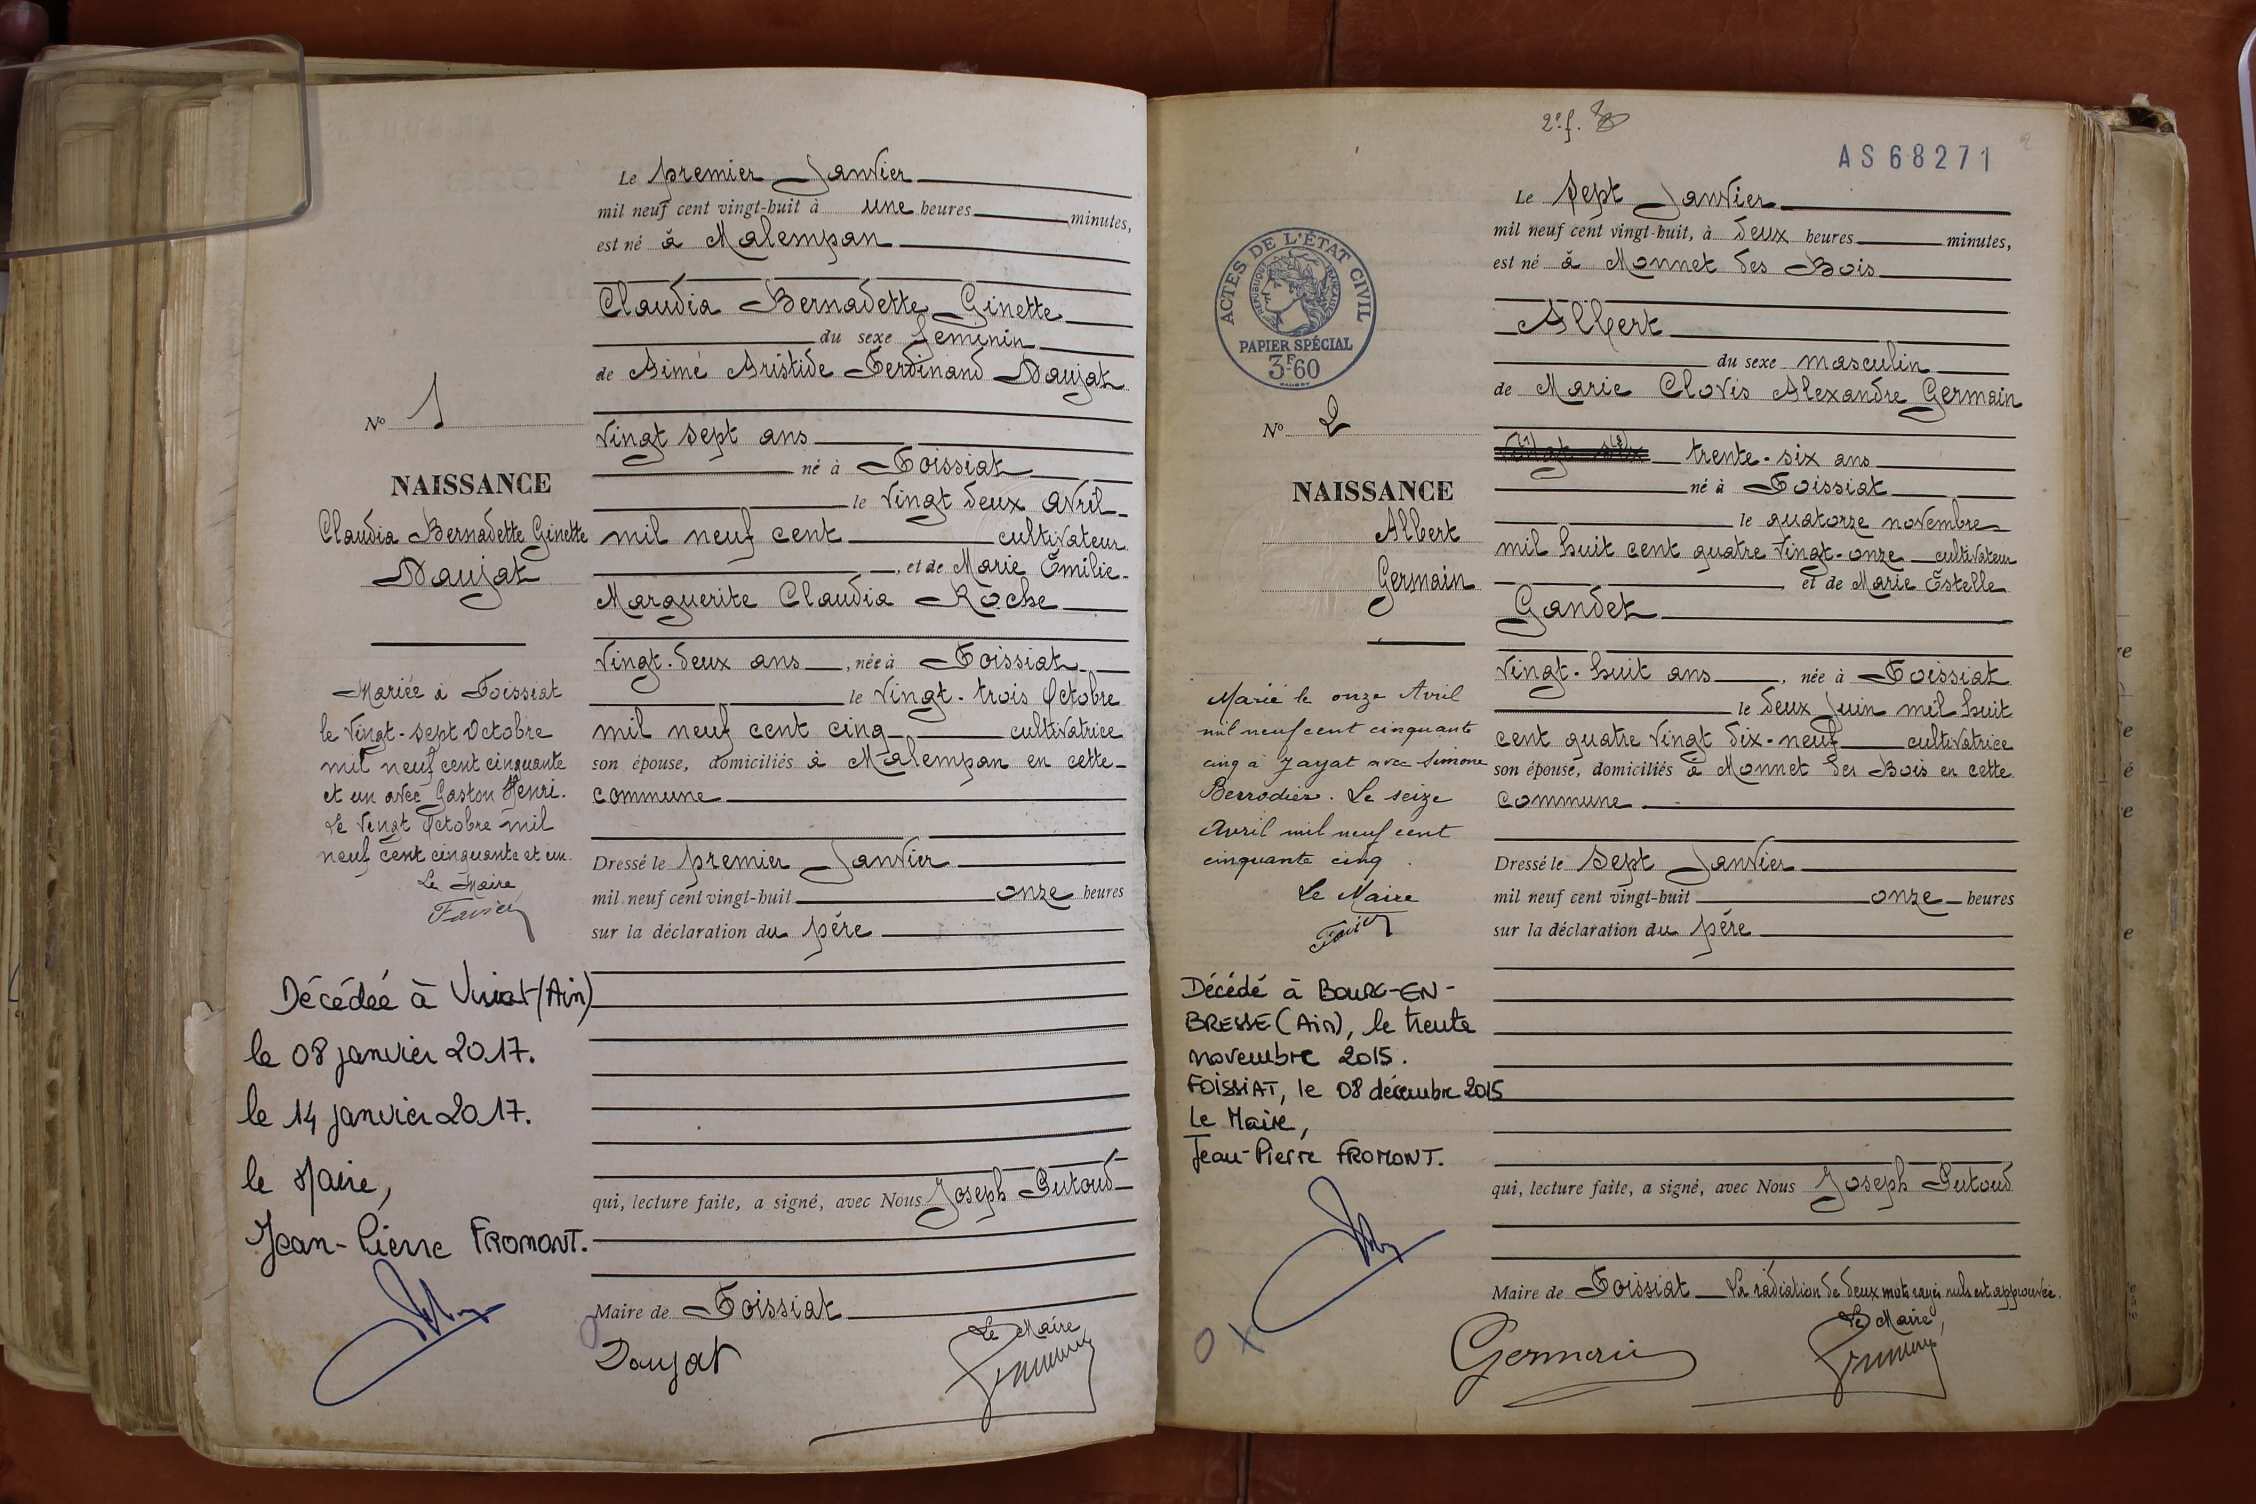 Le premier Janvier
mil neuf cent vingt-huit à une heures minutes,
est né à Malempan
Claudia Bernadette Ginette
du sexe féminin
de Aimé Aristide Ferdinand Daujat
Vingt sept ans
né à Foissiat
le Vingt deux Avril
mil neuf cent cultivateur
, et de Marie Émilie
Marguerite Claudia Roche
Vingt-deux ans , née à Foissiat
le Vingt-trois Octobre
mil neuf cent cinq cultivatrice
son épouse, domiciliés à Malempan en cette
commune
Dressé le premier Janvier
mil neuf cent vingt-huit onze heures
sur la déclaration du père
qui, lecture faite, a signé, avec Nous Joseph Putoud
Maire de Foissiat
Le Maire
Daujat
No 1
NAISSANCE
Claudia Bernadette Ginette
Daujat
Mariée à Foissiat
le Vingt-sept Octobre
mil neuf cent cinquante
et un avec Gaston Henri.
Le Vingt Octobre mil
neuf cent cinquante et un.
Le Maire
Favier
Décédée à Viriat (Ain)
le 08 janvier 2017.
le 14 janvier 2017.
le Maire,
Jean-Pierre FROMONT.
2e f.
AS68271
Le Sept Janvier
mil neuf cent vingt-huit, à deux heures minutes,
est né à Monnet des Bois
Albert
du sexe masculin
de Marie Clovis Alexandre Germain
Vingt six trente-six ans
né à Foissiat
le quatorze novembre
mil huit cent quatre Vingt-onze cultivateur
et de Marie Estelle
Gandet
Vingt-huit ans , née à Foissiat
le deux Juin mil huit
cent quatre Vingt dix-neuf cultivatrice
son épouse, domiciliés à Monnet des Bois en cette
commune
Dressé le Sept Janvier
mil neuf cent vingt-huit onze heures
sur la déclaration du père
qui, lecture faite, a signé, avec Nous Joseph Putoud
Maire de Foissiat La radiation de deux mots rayés nuls est approuvée.
Le Maire,
Germain
ACTES DE L'ÉTAT CIVIL
RÉPUBLIQUE FRANÇAISE
PAPIER SPÉCIAL
3F60
No 2
NAISSANCE
Albert
Germain
Marié le onze Avril
mil neuf cent cinquante
cinq à Jayat avec Simone
Berrodier. Le seize
Avril mil neuf cent
cinquante cinq.
Le Maire
Favier
Décédé à BOURG-EN-
BRESSE (Ain), le trente
novembre 2015.
FOISSIAT, le 08 décembre 2015
Le Maire,
Jean-Pierre FROMONT.